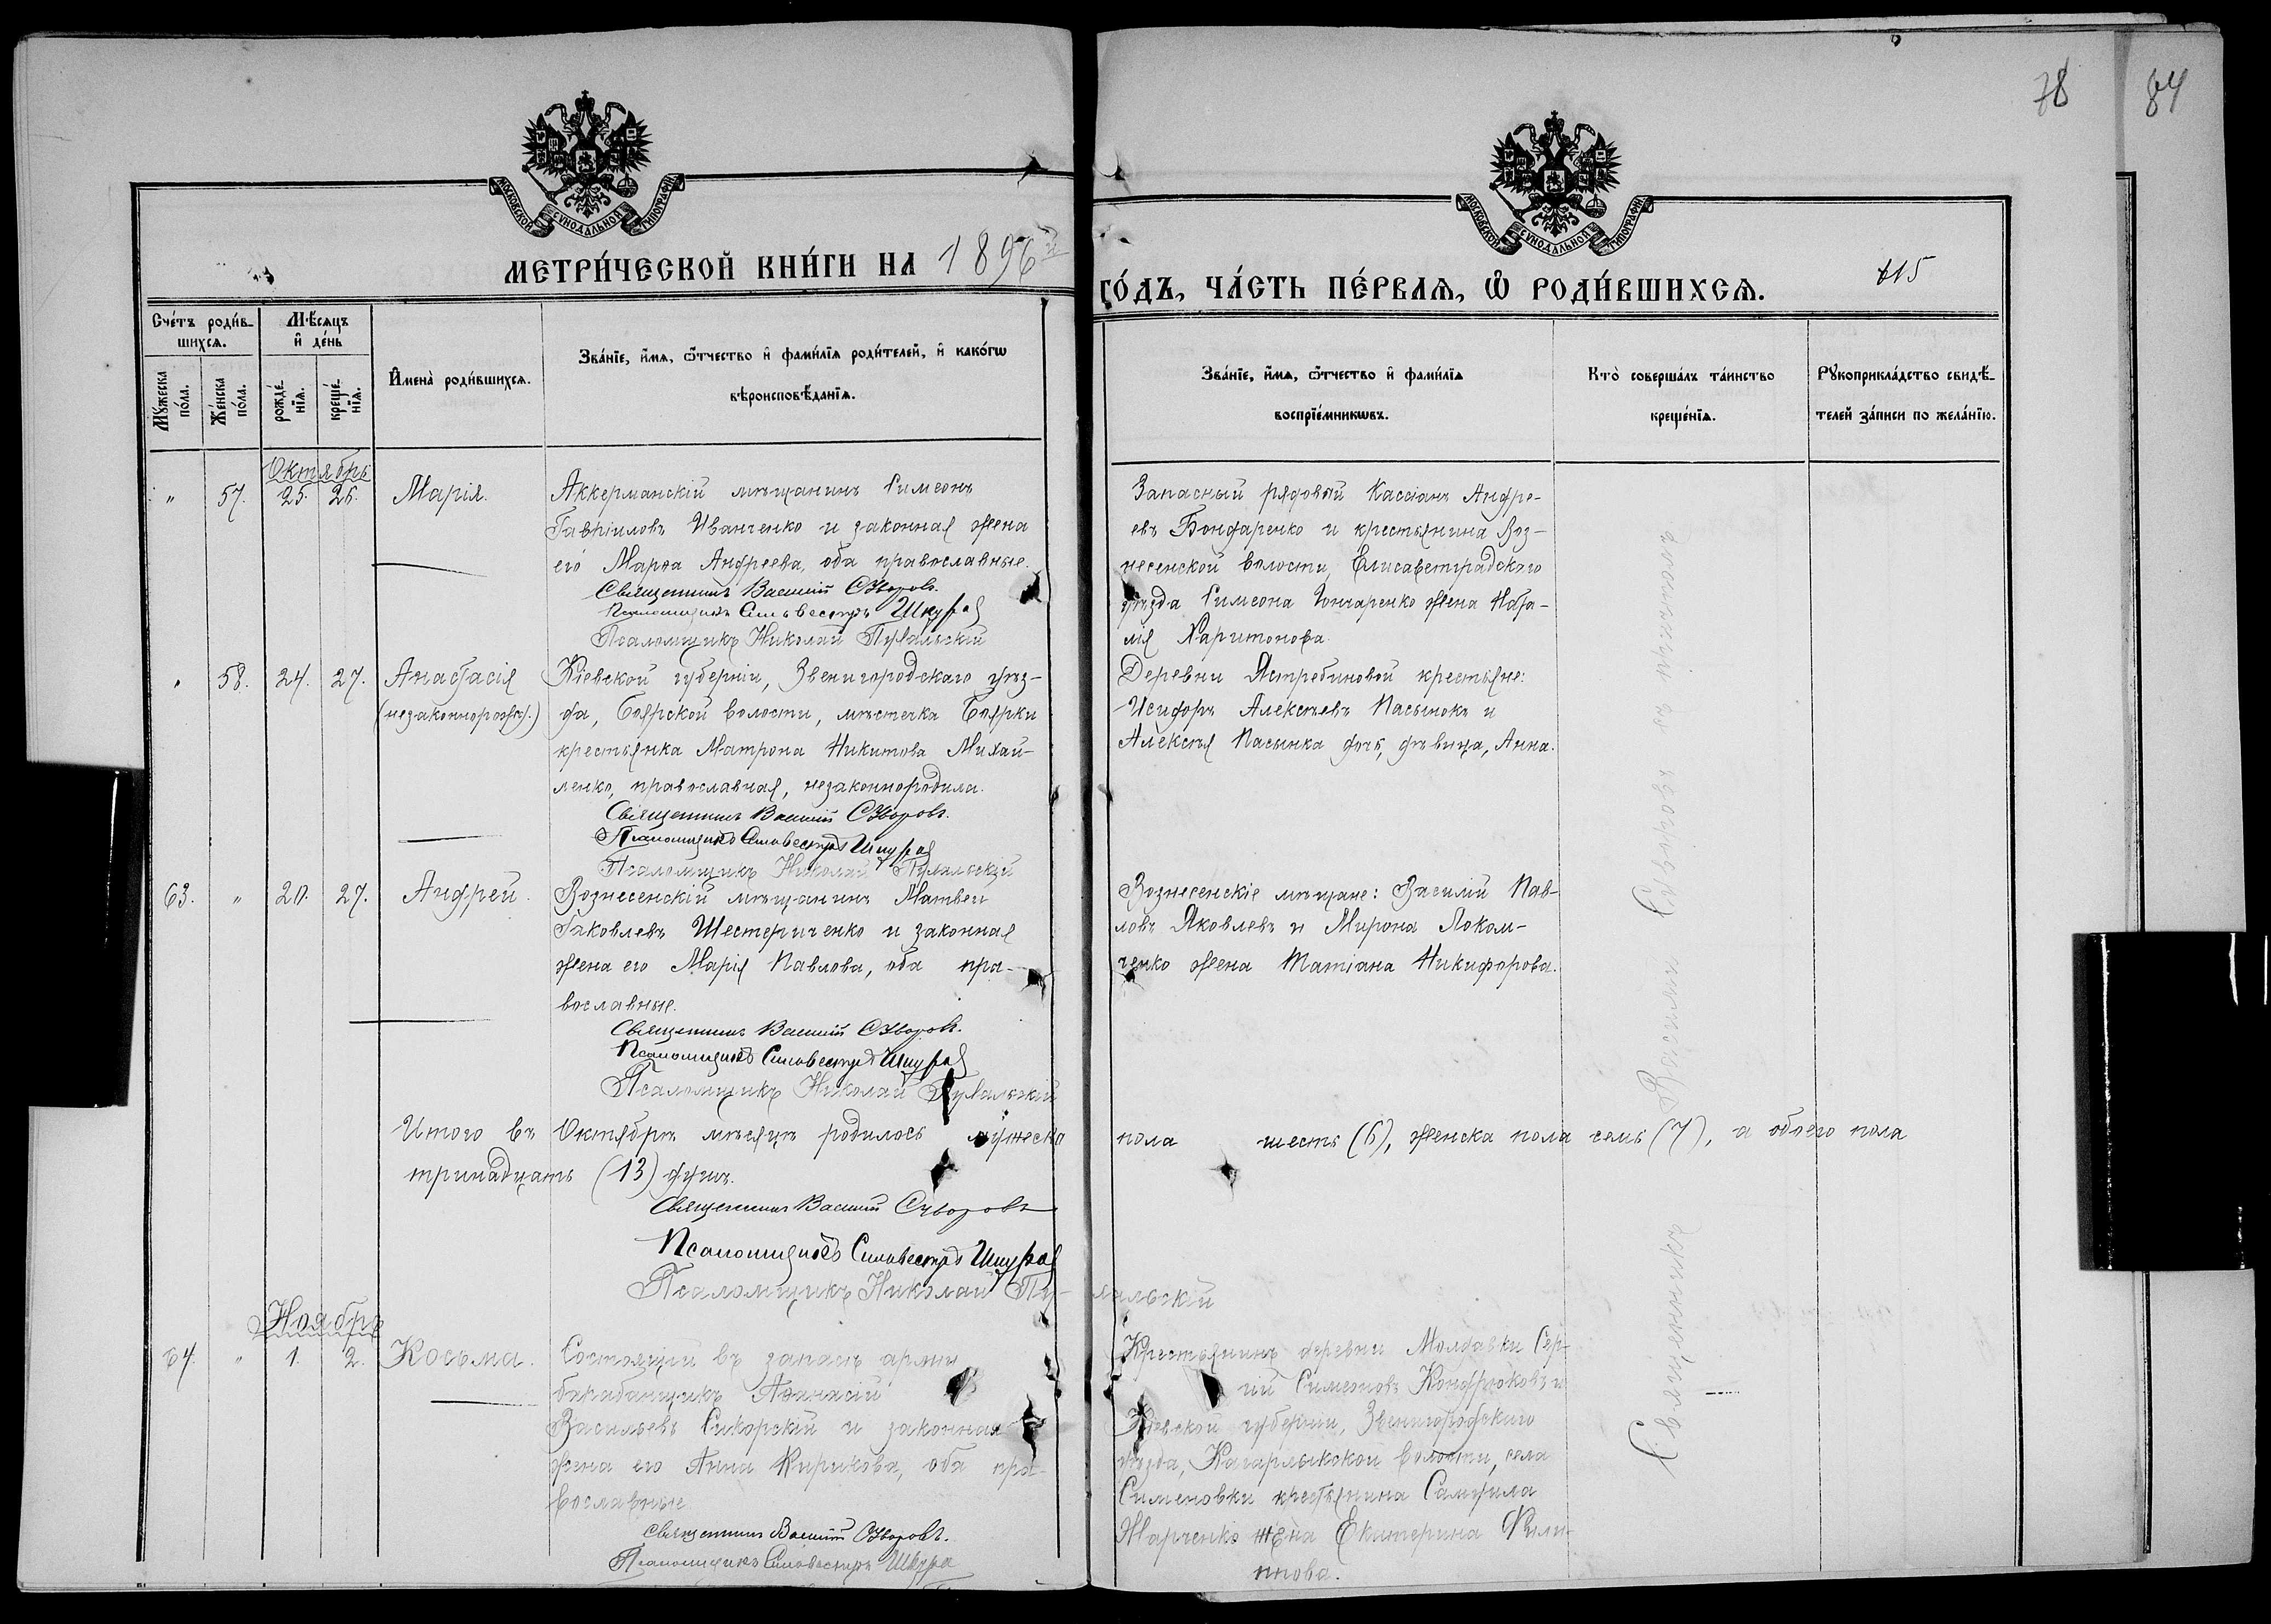 78
84
МОСКОВСКОЙ СѴНОДАЛЬНОЙ ТИПОГРАФІИ
МОСКОВСКОЙ СѴНОДАЛЬНОЙ ТИПОГРАФІИ
МЕТРИ́ЧЕСКОЙ КНИ́ГИ НА 1896й
ГО́ДЪ, ЧА́СТЬ ПЕ́РВАѦ, Ѡ РОДИ́ВШИХСѦ.
615
Сче́тъ роди́в-
шихсѧ.
Мѣ́сѧцъ
и҆ де́нь
Мꙋ́жеска
по́ла.
Же́нска
по́ла.
рожде́-
нїѧ.
креще́-
нїѧ.
И҆мена̀ роди́вшихсѧ.
Зва́нїе, и҆́мѧ, ѻ҆́тчество и҆ фами́лїѧ роди́телей, и҆ како́гѡ
вѣроисповѣ́данїѧ.
Зва́нїе, и҆́мѧ, ѻ҆́тчество и҆ фами́лїѧ
воспрїе́мникѡвъ.
Кто̀ соверша́лъ та́инство
креще́нїѧ.
Рꙋкоприкла́дство свидѣ́-
телей за́писи по жела́нїю.
Октябрь
" 57. 25. 26. Марія.
Аккерманскій мѣщанинъ Симеонъ
Гавріиловъ Иванченко и законная жена
его Марѳа Андреева, оба православные.
Священникъ Василій Суворовъ.
Псаломщикъ Сильвестръ Шкура
Псаломщикъ Николай
Запасный рядовый Кассіанъ Андре-
евъ Бондаренко и крестьянина Воз-
несенской волости, Елисаветградскаго
уѣзда Симеона Гончаренко жена Ната-
лія Харитонова.
" 58. 24. 27. Анастасія
(незаконнорожд.)
Кіевской губерніи, Звенигородскаго уѣз-
да, Боярской волости, мѣстечка Боярки
крестьянка Матрона Никитова Михай-
ленко, православная, незаконнородила.
Священникъ Василій Суворовъ.
Псаломщикъ Сильвестръ Шкура
Псаломщикъ Николай
Деревни Ястребиновой крестьяне:
Исидоръ Алексѣевъ Пасынокъ и
Алексѣя Пасынка дочь, дѣвица, Анна.
63. " 20. 27. Андрей.
Вознесенскій мѣщанинъ Матвей
Іаковлевъ Шестериченко и законная
жена его Марія Павлова, оба пра-
вославные.
Священникъ Василій Суворовъ.
Псаломщикъ Сильвестръ Шкура
Псаломщикъ Николай
Вознесенскіе мѣщане: Василій Пав-
ловъ Яковлевъ и Мирона
жена Татіана Никифорова.
Итого въ Октябрѣ мѣсяцѣ родилось мужеска пола шесть (6), женска пола семь (7), а обоего пола
тринадцать (13) душъ.
Священникъ Василій Суворовъ
Псаломщикъ Сильвестръ Шкура
Псаломщикъ Николай
Ноябрь
64. " 1. 2. Косьма.
Состоящій въ запасѣ арміи
барабанщикъ Аѳанасій
Васильевъ Сикорскій и законная
жена его Анна Кирикова, оба пра-
вославные
Священникъ Василій Суворовъ.
Псаломщикъ Сильвестръ Шкура
Крестьянинъ деревни Молдавки Сер-
гій Симеоновъ Кондрюковъ и
Кіевской губерніи, Звенигородскаго
уѣзда, Кагарлыкской волости, села
Сименовки крестьянина Самуила
Харченко жена Екатерина Фили-
ппова.
Священникъ Василій Суворовъ съ причтомъ